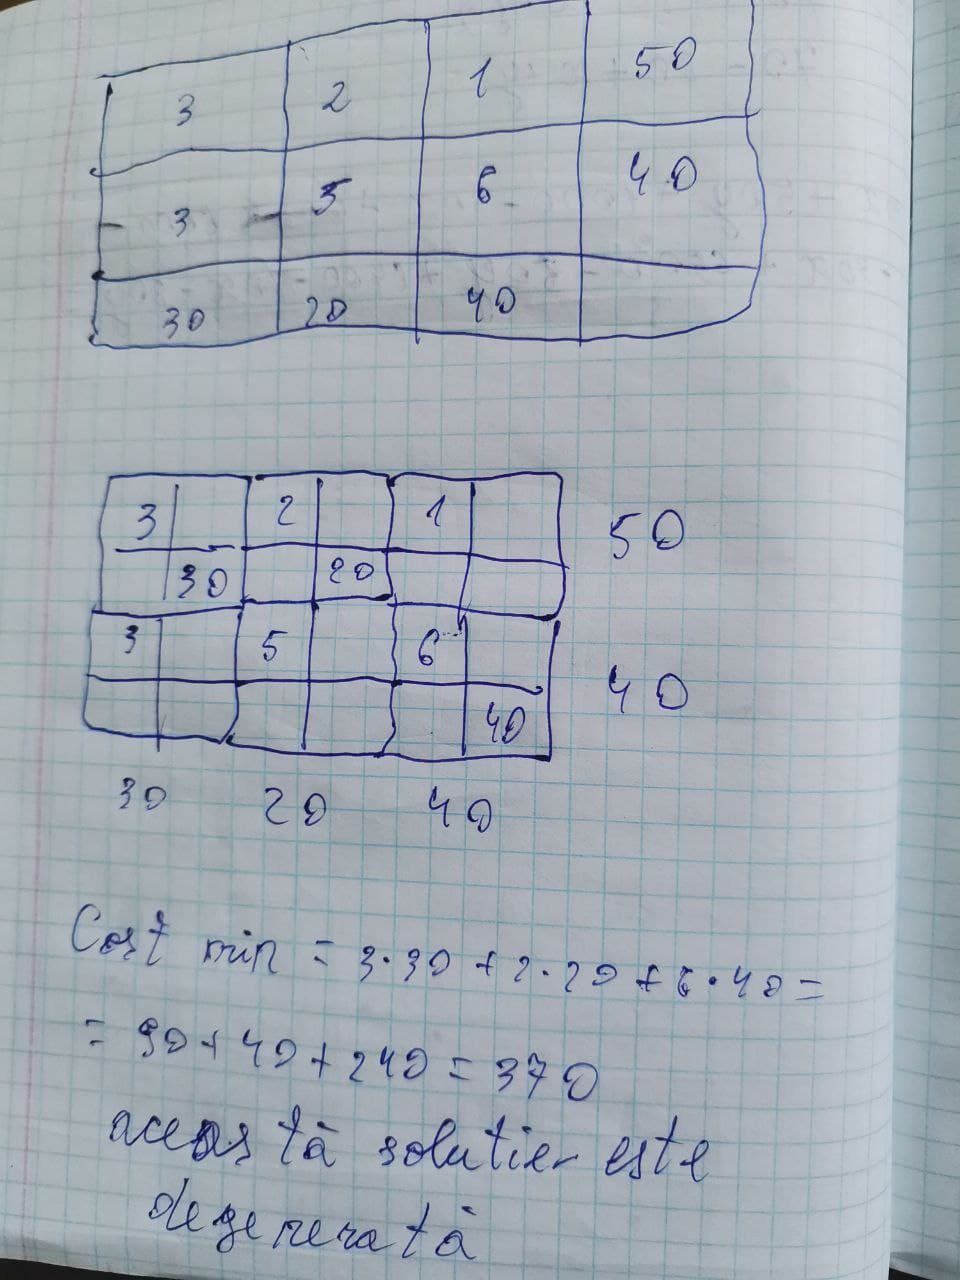 3 2 1 50
3 5 6 40
30 20 40
3 2 1 50
30 20
3 5 6 40
40
30 20 40
Cost min = 3·30 + 2·20 + 6·40 =
= 90 + 40 + 240 = 370
această solutie este
degenerată